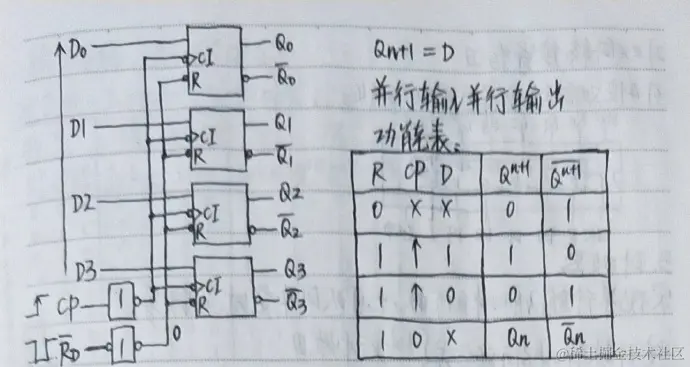 D0
CI
R
Q0
Q̅0
D1
CI
R
Q1
Q̅1
D2
CI
R
Q2
Q̅2
D3
CI
R
Q3
Q̅3
CP
1
R̅D
1
0
Qn+1 = D
并行输入并行输出
功能表:
R CP D Qⁿ⁺¹ Q̅ⁿ⁺¹
0 X X 0 1
1 ↑ 1 1 0
1 ↑ 0 0 1
1 0 X Qn Q̅n
@稀土掘金技术社区